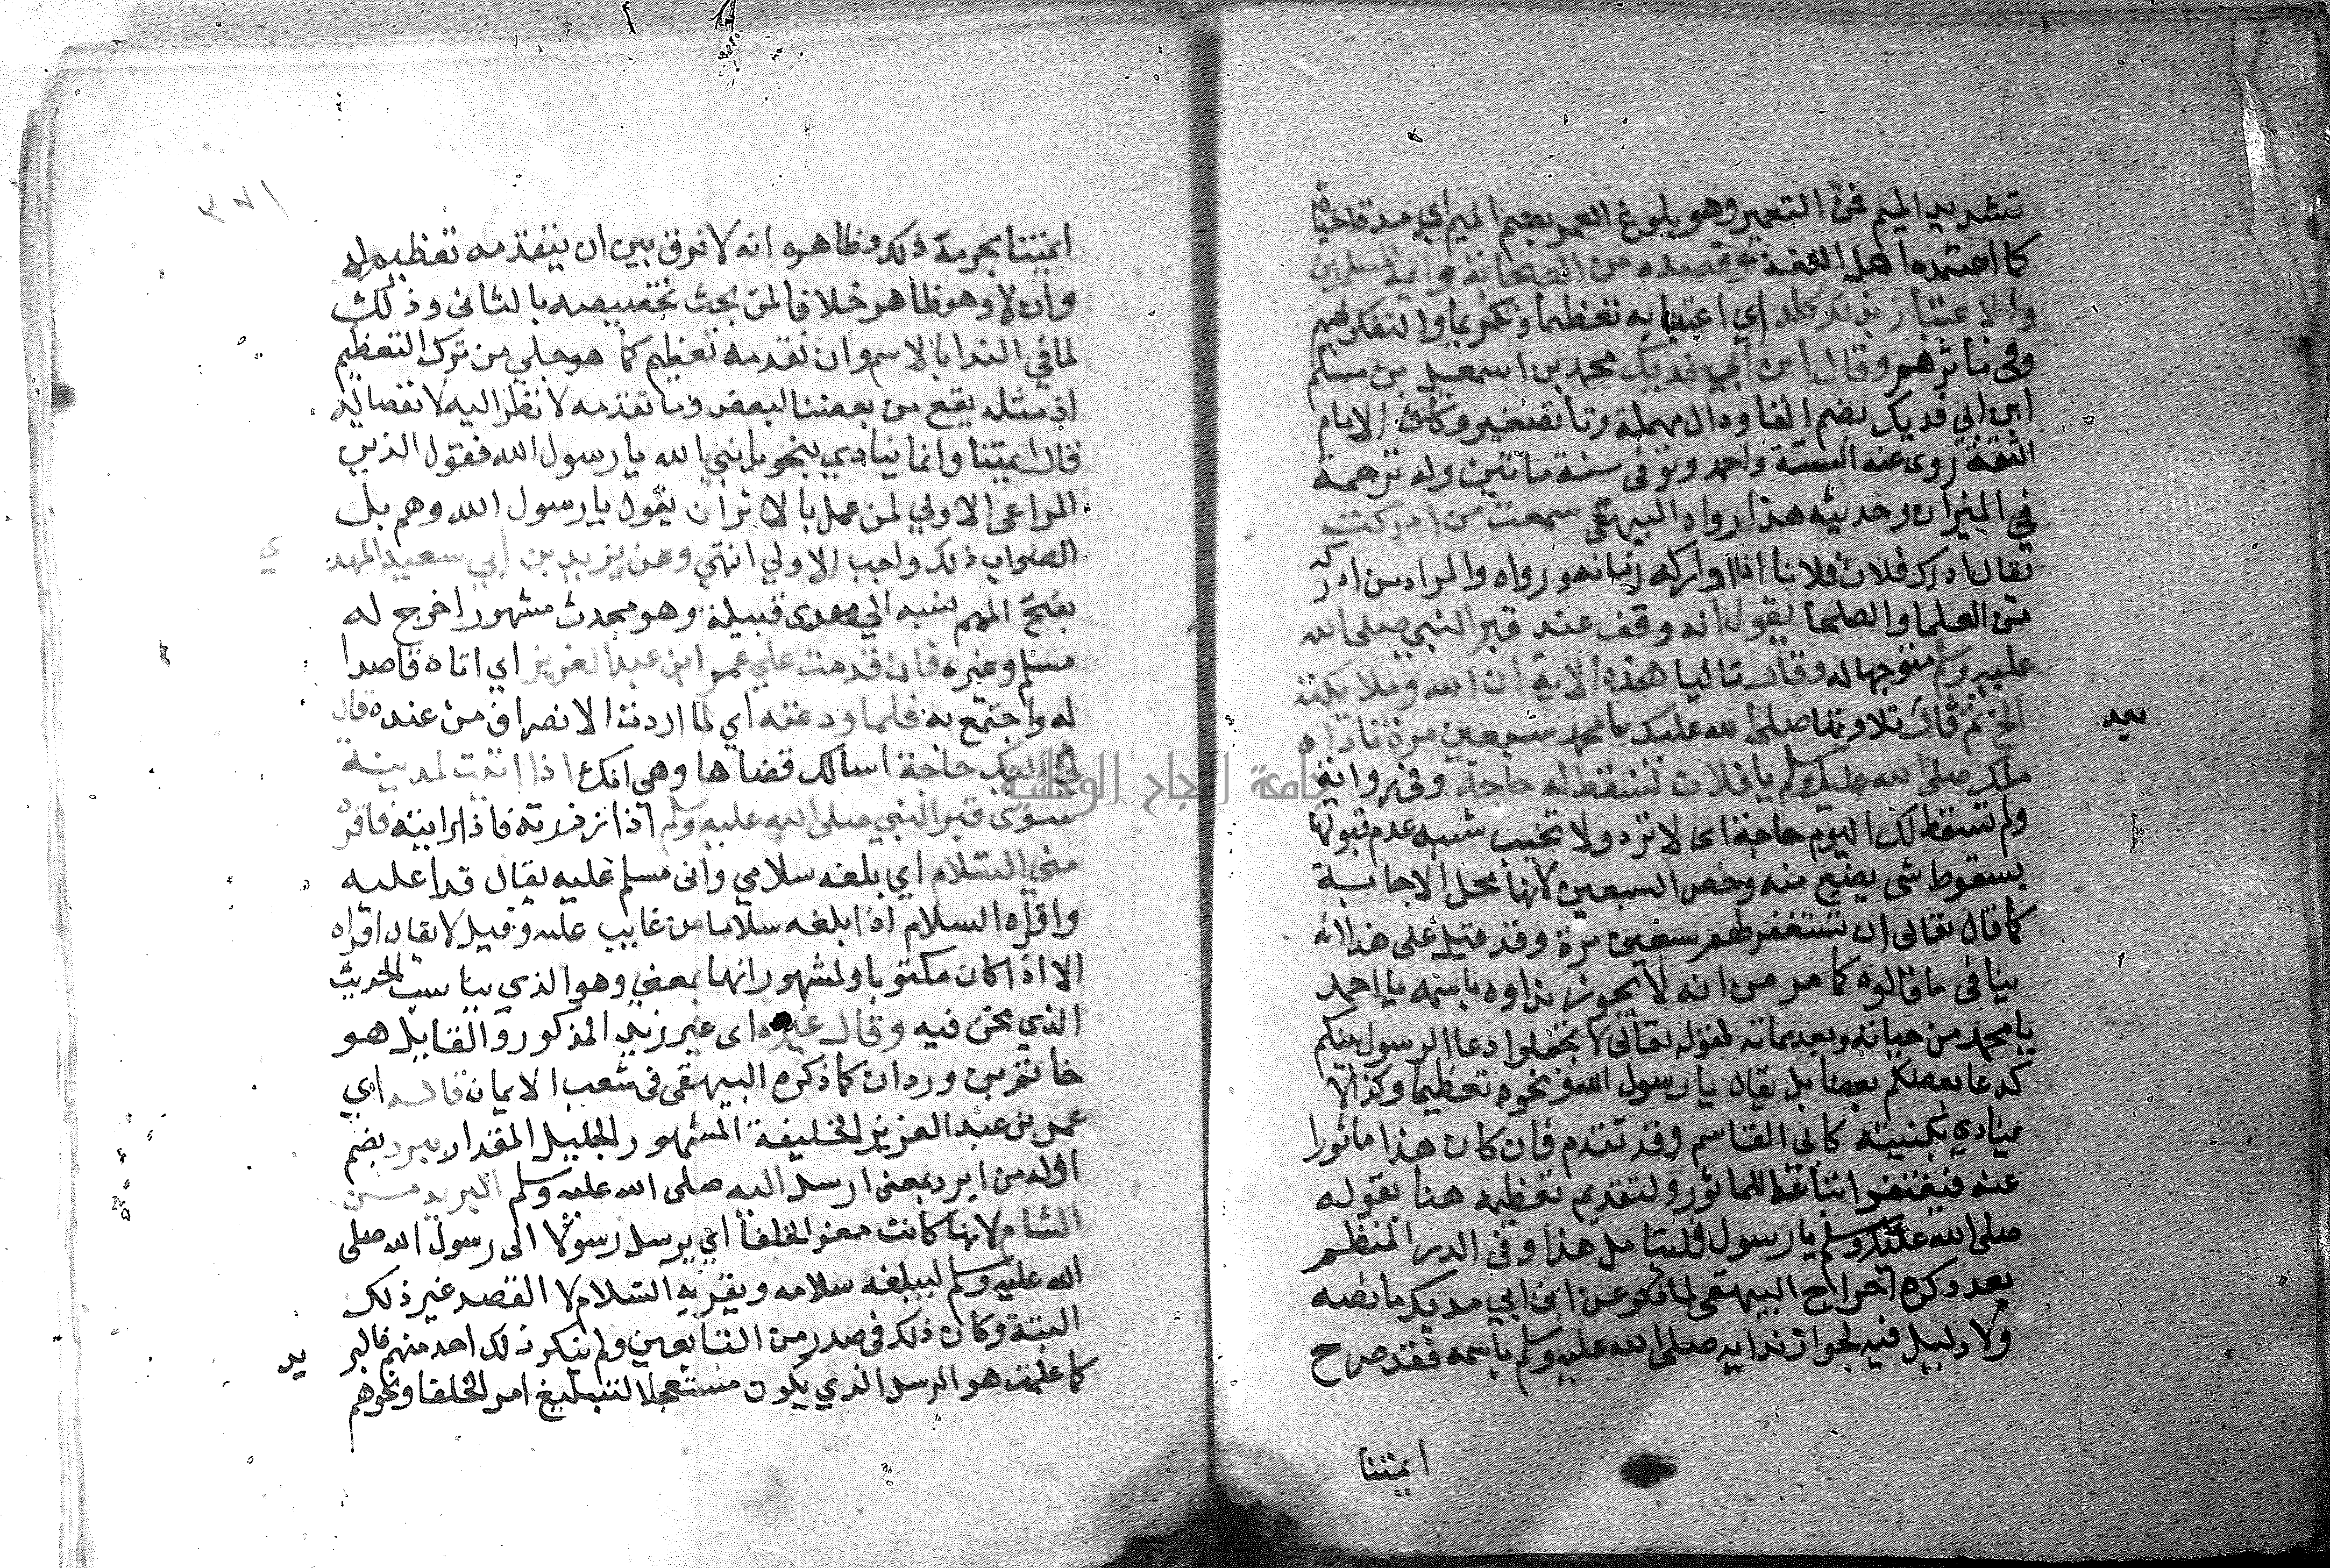 تشديد الميم من التعمير وهو بلوغ العمر بضم الميم اي مدة حياة
كما اعتمده اهل الثقة وقصده من الصحابة وايمة المسلمين
والاعتبار بذلك كله اي اعتباره تعظيما وتكريما والتفكر فيهم
وفي مآثرهم وقال ابن ابي فديك محمد بن اسمعيل بن مسلم
ابن ابي فديك بضم الفا ودال مهملة وتا تصغير وكاف الامام
الثقة روى عنه الستة واحمد وتوفى سنة مائتين وله ترجمة
في الميزان وحديثه هذا رواه البيهقى سمعت من ادركت
يقال ادرك فلان فلانا اذا ادرك زمانه وراه والمراد من ادركه
من العلما والصلحا يقول انه وقف عند قبر النبي صلى الله
عليه وسلم متوجها له وقال تاليا هذه الاية ان الله وملايكته
الخ ثم قال تلاوتها صلى الله عليك يا محمد سبعين مرة ناداه
بعد
ملك صلى الله عليك وسلم يا فلان لم تسقط له حاجة وفي رواية
ولم تسقط لك اليوم حاجة اى لا ترد ولا تخيب شبه عدم قبولها
بسقوط شى يضيع منه وخص السبعين لانها محل الاجابة
كما قال تعالى ان تستغفر لهم سبعين مرة وقد قيل على هذا انه
ينافى ما قالوه كما مر من انه لا يجوز نداوه باسمه يا احمد
يا محمد من حياته وبعد مماته لقوله تعالى لا تجعلوا دعا الرسول بينكم
كدعا بعضكم بعضا بل يقال يا رسول الله ونحوه تعظيما وكذا لا
ينادي بكنيته كابي القاسم وقد تقدم فان كان هذا ماثورا
عنه فيغتفر اتباعا للماثور ولتقديم تعظيمه هنا بقوله
صلى الله عليك وسلم يا رسول فليتامل هذا وفى الدر المنظم
بعد ذكره اخراج البيهقى لما ذكر عن ابن ابي فديك ما نصه
ولا دليل فيه لجواز ندايه صلى الله عليه وسلم باسمه فقد صرح
ايمتنا
٣٧١
ايمتنا بحرمة ذلك وظاهره انه لا فرق بين ان يتقدمه تعظيم له
وان لا وهو ظاهر خلافا لمن بحث تخصيصه بالثانى وذلك
لما في الندا بالاسم وان تقدمه تعظيم كما هو جلي من ترك التعظيم
اذ مثله يقع من بعضنا لبعض وما تقدمه لا نظر اليه لانفصاله
قال ايمتنا وانما ينادي بنحو يا نبي الله يا رسول الله فقول الذين
المراعى الاولي لمن عمل بالاثر ان يقول يا رسول الله وهم بل
الصواب ذلك واجب الاولي انتهى وعن يزيد بن ابي سعيد المهد
ي
بفتح الميم نسبه الي مهدى قبيلة وهو محدث مشهور اخرج له
مسلم وغيره قال قدمت علي عمر ابن عبد العزيز اي اتاه قاصدا
له واجتمع به فلما ودعته اي لما اردت الانصراف من عنده قال
لي اليك حاجة اسالك قضاها وهى انك اذا اتيت المدينة
سترى قبر النبي صلى الله عليه وسلم اذا زرته فاذا رايته فاقره
مني السلام اي بلغه سلامي وانى مسلم عليه يقال قرا عليه
واقراه السلام اذا بلغه سلاما من غايب عليه وقيل لا يقال اقراه
الا اذا كان مكتوبا والمشهور انهما بمعني وهو الذي يناسب الحديث
الذي نحن فيه وقال غيره اى غير زيد المذكور والقايل هو
حاتم بن وردان كما ذكره البيهقى في شعب الايمان قال اي
عمر بن عبد العزيز الخليفة المشهور الجليل المقدار يبرد بضم
اوله من ابرد بمعنى ارسل اليه صلى الله عليه وسلم البريد من
الشام لانها كانت مقر الخلفا اي يرسل رسولا الى رسول الله صلى
الله عليه وسلم ليبلغه سلامه ويقريه السلام لا القصد غير ذلك
البتة وكان ذلك في صدر من التابعين ولم ينكر ذلك احد منهم فالبر
يد
كما علمت هو الرسل الذي يكون مستعجلا لتبليغ امر الخلفا ونحوهم
جامعة النجاح الوطنية